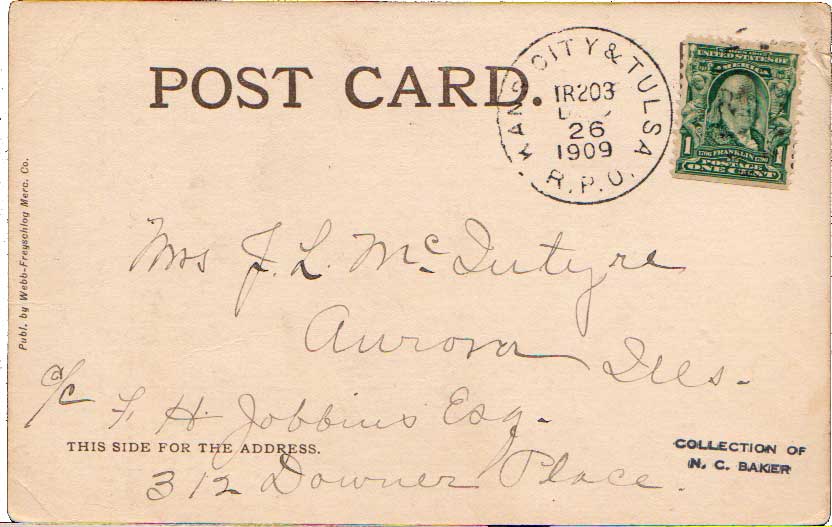 POST CARD.
KANS. CITY & TULSA
TR203
26
1909
R.P.O.
UNITED STATES OF
AMERICA
1 1706 FRANKLIN 1790 1
POSTAGE
ONE CENT
Publ. by Webb-Freyschlag Merc. Co.
Mrs J. L. McIntyre
Aurora Ills.
a/c F. H. Jobbins Esq.
THIS SIDE FOR THE ADDRESS.
312 Downer Place.
COLLECTION OF
N. C. BAKER